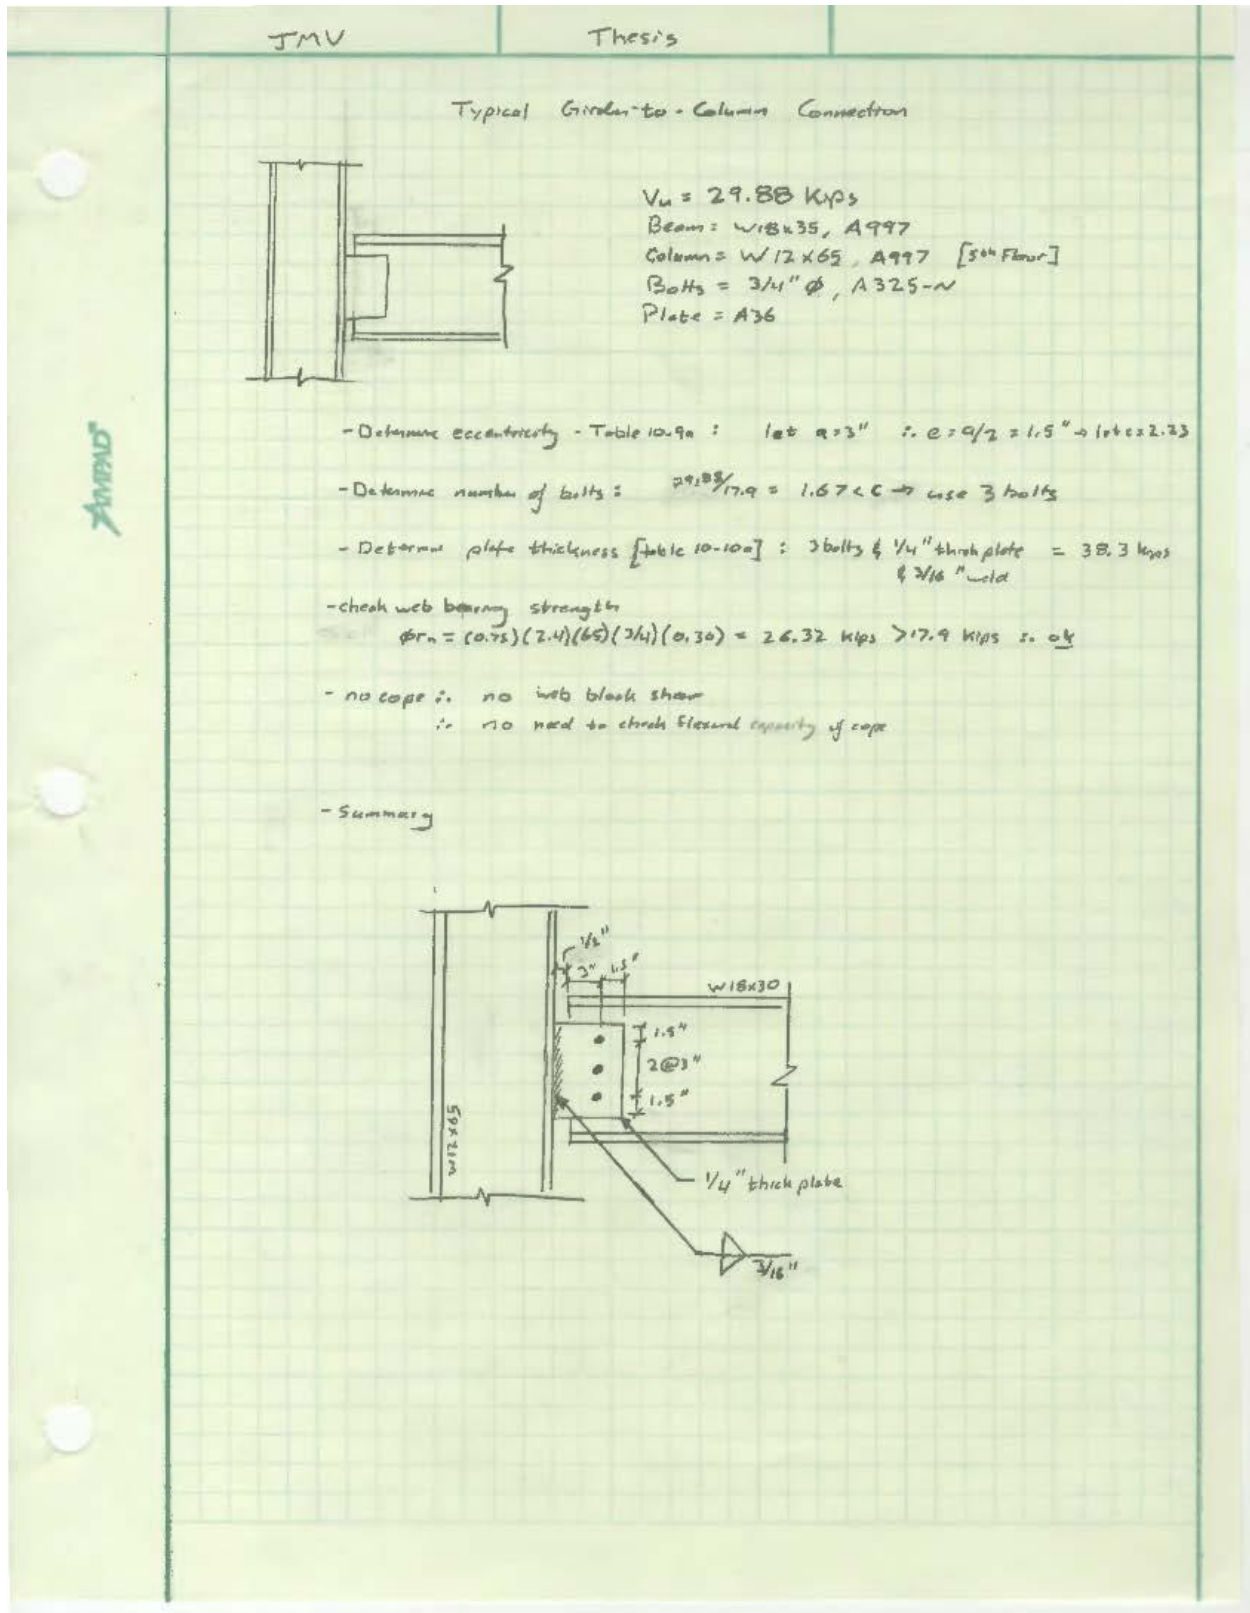 JMV Thesis
Typical Girder-to-Column Connection
Vu = 29.88 Kips
Beam = W18x35, A997
Column = W12x65, A997 [5th Floor]
Bolts = 3/4" ø, A325-N
Plate = A36
AMPAD®
- Determine eccentricity - Table 10.9a : let a=3" ∴ e = a/2 = 1.5" → let c=2.23
- Determine number of bolts : 29.88/17.9 = 1.67 < C → use 3 bolts
- Determine plate thickness [table 10-10a] : 3 bolts & 1/4" thick plate = 38.3 kips
& 3/16" weld
- check web bearing strength
ørn = (0.75)(2.4)(65)(3/4)(0.30) = 26.32 kips > 17.9 kips ∴ ok
- no cope ∴ no web block shear
∴ no need to check flexural capacity of cope
- Summary
1/2"
3" 1.5"
W18x30
1.5"
2@3"
1.5"
W12x65
1/4" thick plate
3/16"